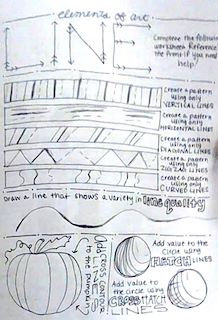 elements of art
LINE
Complete the following
worksheet. Reference
the front if you need
help!
Create a pattern
using only
VERTICAL LINES
Create a pattern
using only
HORIZONTAL LINES
Create a pattern
using only
DIAGONAL LINES
Create a pattern
using only
ZIG ZAG LINES
Create a pattern
using only
CURVED LINES
Draw a line that shows a variety in line quality
Add CROSS CONTOUR
LINES
to the pumpkin
Add value to the
circle using
HATCH LINES
Add value
to the circle using
CROSS HATCH
LINES